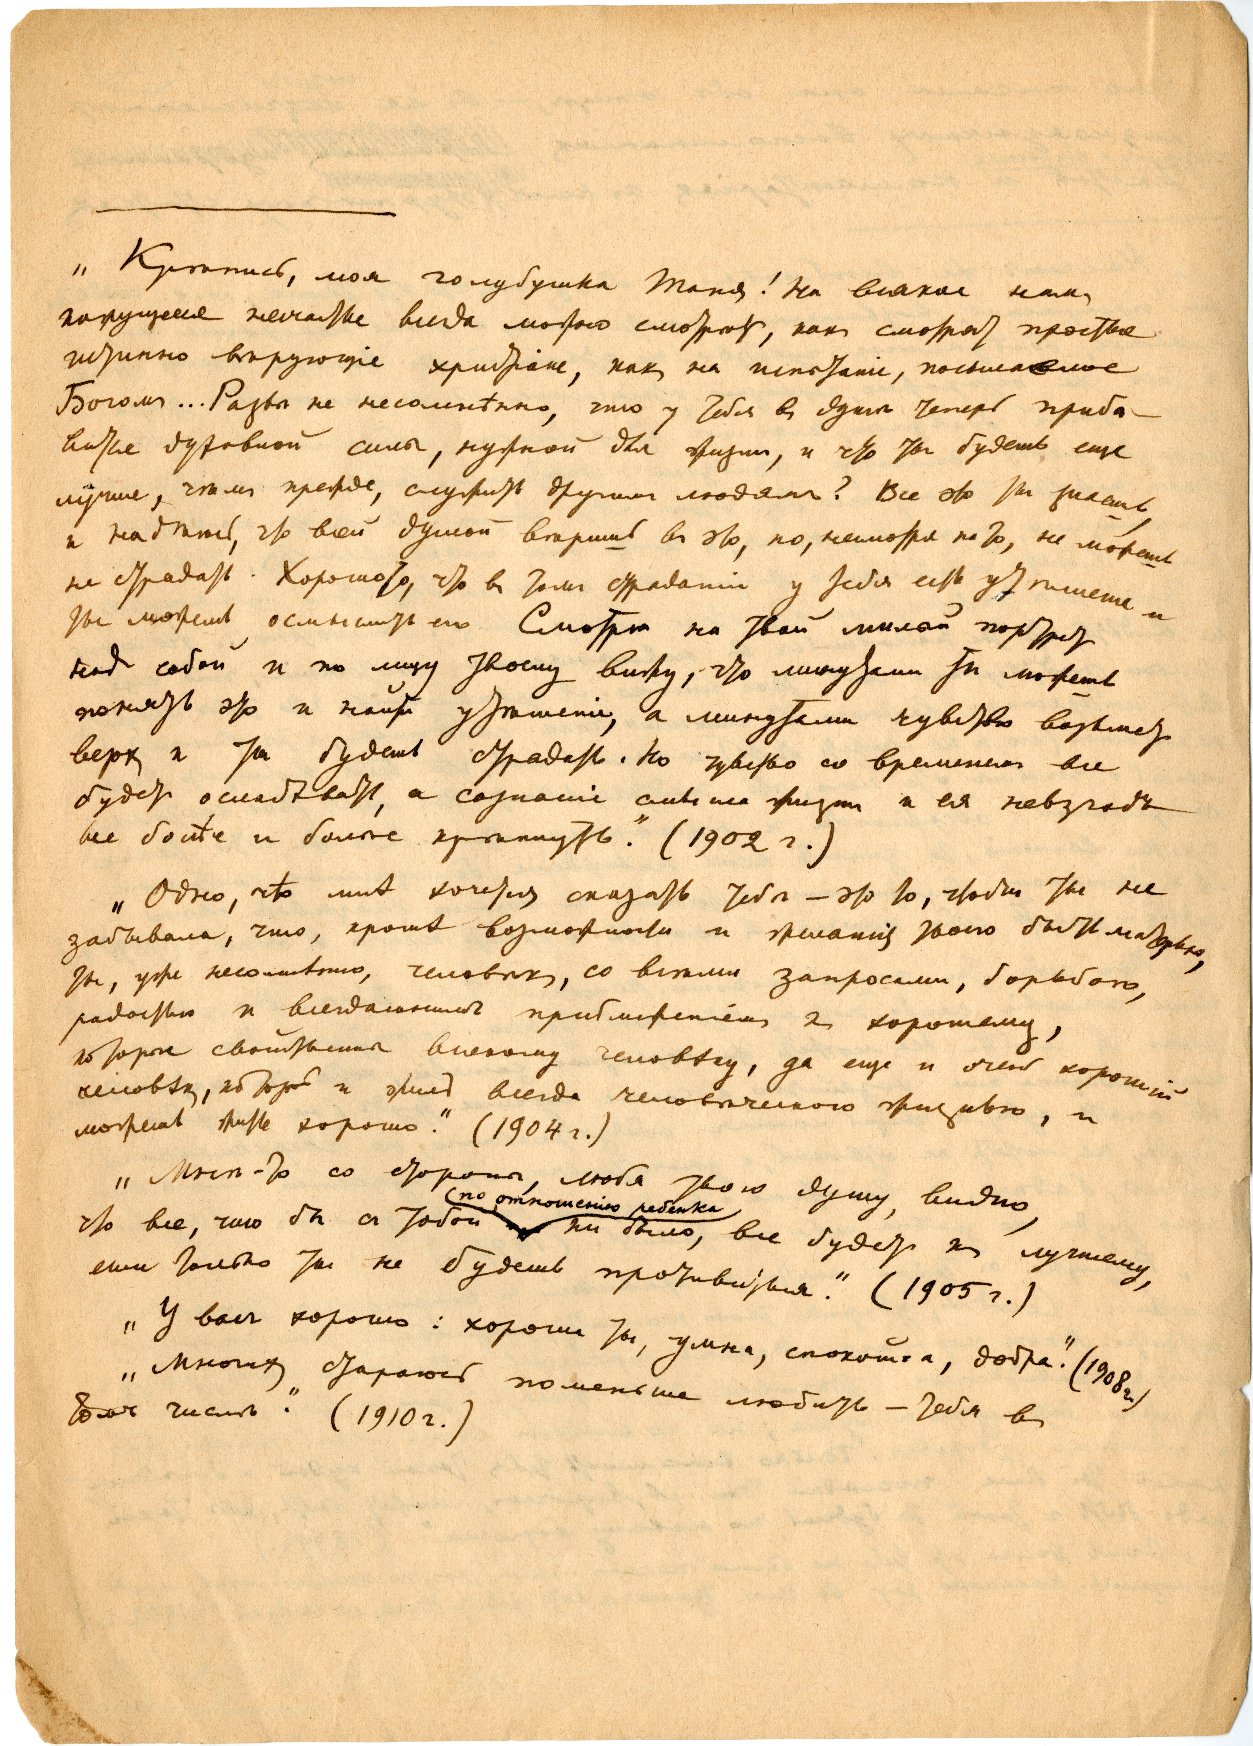 „Крѣпись, моя голубушка Таня! На всякое намъ
кажущееся несчастье всегда можно смотрѣть, какъ смотрятъ простые
истинно вѣрующіе христіане, какъ на испытаніе, посылаемое
Богомъ... Развѣ не несомнѣнно, что у тебя въ душѣ теперь приба-
вилось духовной силы, нужной для жизни, и что ты будешь еще
лучше, чѣмъ прежде, служить другимъ людямъ? Все это ты знаешь,
и надѣюсь, что всей душой вѣришь въ это, но, несмотря на то, не можешь
не страдать. Хорошо то, что въ томъ страданіи у тебя есть утѣшеніе и
ты можешь осмыслить его Смотрю на твой милый портретъ
надъ собой и по лицу твоему вижу, что минутами ты можешь
понять это и найти утѣшеніе, а минутами чувство возьметъ
верхъ и ты будешь страдать. Но чувство со временемъ все
будетъ ослабѣвать, а сознаніе смысла жизни и ея невзгодъ
все болѣе и болѣе крѣпнуть." (1902 г.)
„Одно, что мнѣ хочется сказать тебѣ – это то, чтобы ты не
забывала, что, кромѣ возможности и желанія твоего быть матерью,
ты, уже несомнѣнно, человѣкъ, со всѣми запросами, борьбою,
радостью и всегдашнимъ приближеніемъ къ хорошему,
которые свойственны всякому человѣку, да еще и очень хорошій
человѣкъ, который и жилъ всегда человѣческою жизнью, и
можешь жить хорошо." (1904 г.)
„Мнѣ-то со стороны, любя твою душу, видно,
(по отношенію ребенка
что все, что бы съ тобой ни было, все будетъ къ лучшему,
если только ты не будешь противиться." (1905 г.)
„У васъ хорошо: хороша ты, умна, спокойна, добра." (1908 г.)
„Многихъ стараюсь поменьше любить – тебя въ
томъ числѣ." (1910 г.)